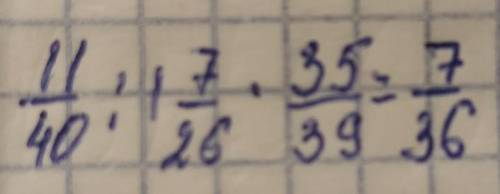 11/40 : 1 7/26 · 35/39 = 7/36